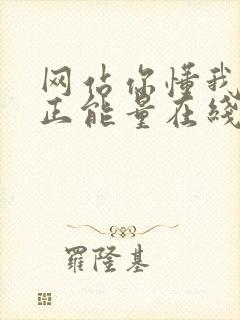 网站你懂我
正能量在线
羅隆基